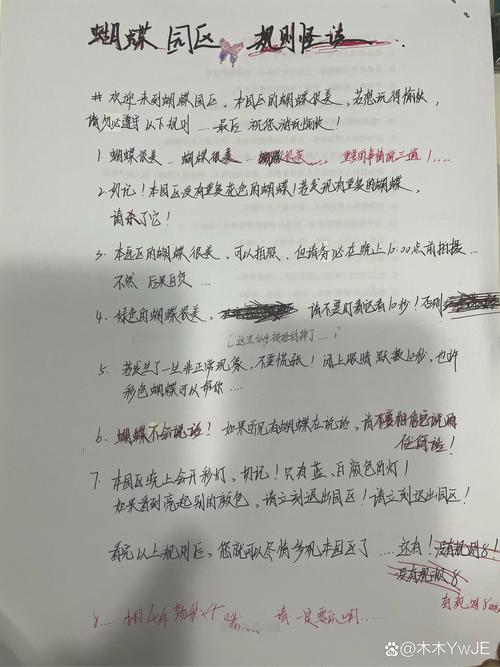 蝴蝶园区 规则怪谈
# 欢迎来到蝴蝶园区,本园区的蝴蝶很美,若想玩得愉快,
请勿必遵守以下规则 ....最后 祝您游玩愉快!
1. 蝴蝶很美 .. 蝴蝶很美 ... 蝴蝶很美 .... 重要的事情说三遍!....
2. 切记!本园区没有重复花色的蝴蝶!若发现有重复的蝴蝶,
请杀了它!
3. 本园区的蝴蝶很美,可以拍照,但请务必在晚上 :00点前拍摄 ...
不然 后果自负 ....
4. 绿色的蝴蝶很美, 请不要盯着它看 秒!否则
(这里似乎被 掉了 ....)
5. 若发生了一些非正常现象,不要慌张!闭上眼睛默数 秒,也许
彩色蝴蝶可以 你 ....
6. 蝴蝶不会说话!如果听见有蝴蝶在说话,请不要相信它说的
任何话!
7. 本园区晚上会开彩灯,切记!只有蓝、白颜色的灯!
如果看到亮起别的颜色,请立刻退出园区!请立刻退出园区!
看完以上规则后,您就可以尽情参观本园区了 .... 还有!没有规则8!
没有规则8
有规则8
8.... 请一定要
@木木YwJE